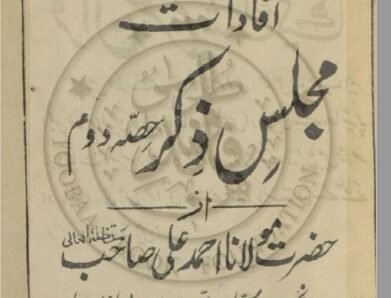 افادات
مجلسِ ذکر حصّہ دوم
از
حضرت مولانا احمد علی صاحب مدظلہ العالی